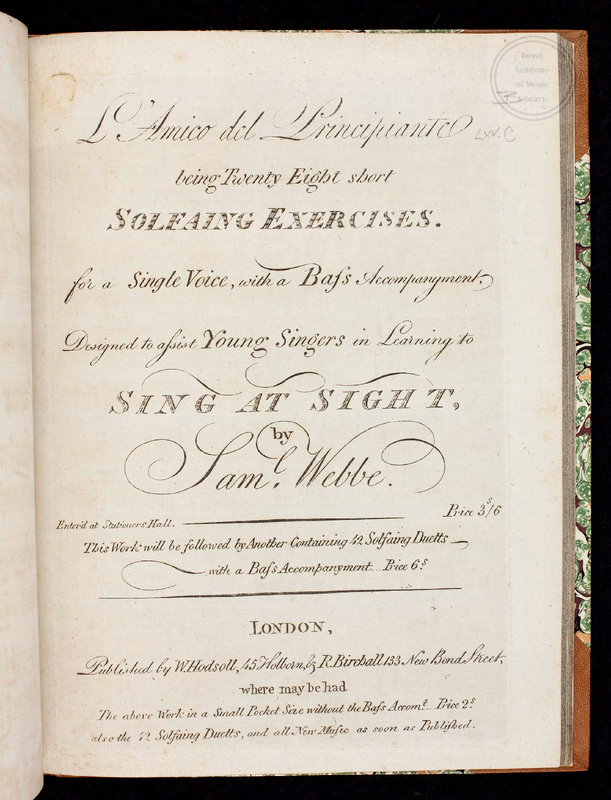 Royal
Academy
of Music
Library
L'Amico del Principiante
LW.C
being Twenty Eight short
SOLFAING EXERCISES.
for a Single Voice, with a Baſs Accompanyment,
Designed to aſsist Young Singers in Learning to
SING AT SIGHT,
by
Saml. Webbe.
Price 3s/6
Enter'd at Stationers Hall.
This Work will be followed by Another Containing 42 Solfaing Duetts
with a Baſs Accompanyment Price 6s
LONDON,
Published by W. Hodsoll, 45 Holborn, & R. Birchall 133 New Bond Street,
where may be had
The above Work in a Small Pocket Size without the Baſs Accomt. Price 2s
also the 42 Solfaing Duetts, and all New Music as soon as Publiſhed.